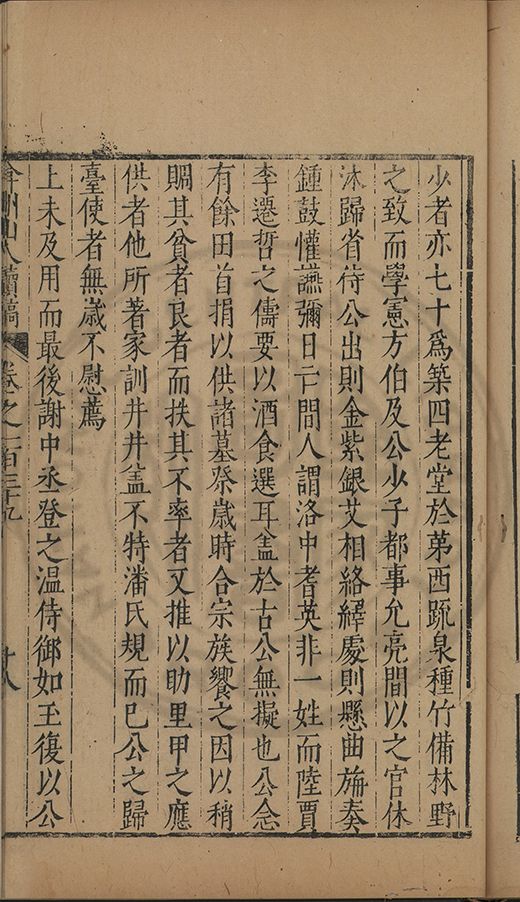 少者亦七十爲築四老堂於苐西䟽泉種竹備林野
之致而學憲方伯及公少子都事允亮間以之官休
沐歸省侍公出則金紫銀艾相絡繹處則懸曲旃奏
鍾鼓懽讌彌日亡間人謂洛中耆英非一姓而陸賈
李遷哲之儔要以酒食選耳盖於古公無擬也公念
有餘田首捐以供諸墓祭歲時合宗族饗之因以稍
賙其貧者良者而抶其不率者又推以助里甲之應
供者他所著家訓井井盖不特潘氏規而巳公之歸
臺使者無歲不慰薦
上未及用而最後謝中丞登之温侍御如玉復以公
弇州山人續稿 卷之一百三十九 十八